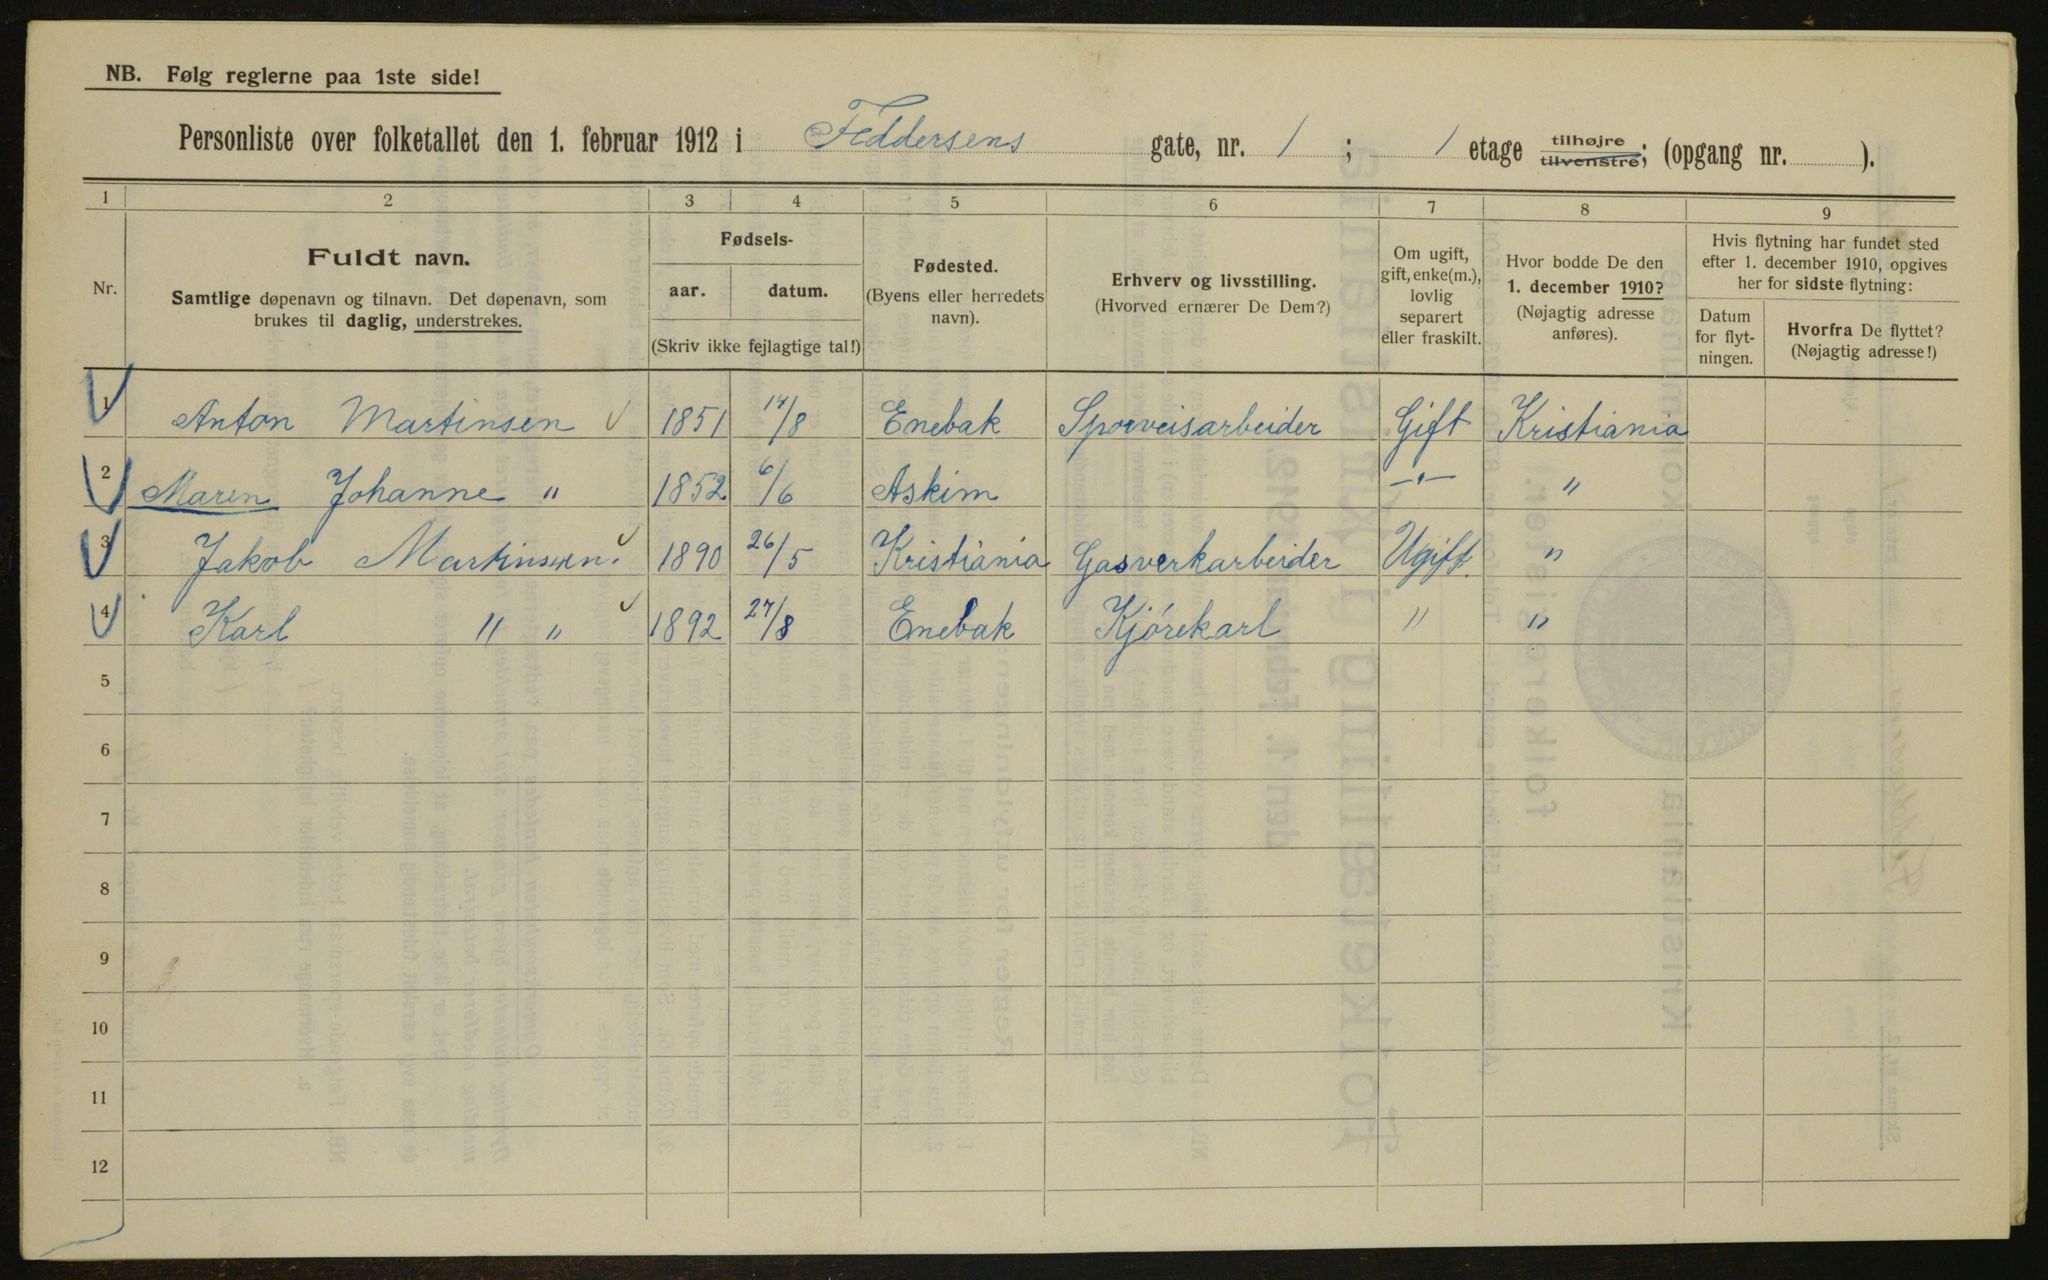 NB. Følg reglerne paa 1ste side!
Personliste over folketallet den 1. februar 1912 i Feddersens gate, nr. 1 ; 1 etage tilhøjre tilvenstre; (opgang nr. ).
1 2 3 4 5 6 7 8 9
Nr.
Fuldt navn.
Samtlige døpenavn og tilnavn. Det døpenavn, som
brukes til daglig, understrekes.
Fødsels-
aar. datum.
(Skriv ikke fejlagtige tal!)
Fødested.
(Byens eller herredets
navn).
Erhverv og livsstilling.
(Hvorved ernærer De Dem?)
Om ugift,
gift, enke(m.),
lovlig
separert
eller fraskilt.
Hvor bodde De den
1. december 1910?
(Nøjagtig adresse
anføres).
Hvis flytning har fundet sted
efter 1. december 1910, opgives
her for sidste flytning:
Datum
for flyt-
ningen.
Hvorfra De flyttet?
(Nøjagtig adresse!)
1 Anton Martinsen 1851 14/8 Enebak Sporveisarbeider Gift Kristiania
2 Maren Johanne " 1852 6/6 Askim -"- "
3 Jakob Martinsen. 1890 26/5 Kristiania Gasverkarbeider Ugift. "
4 Karl " " 1892 27/8 Enebak Kjørekarl " "
5
6
7
8
9
10
11
12